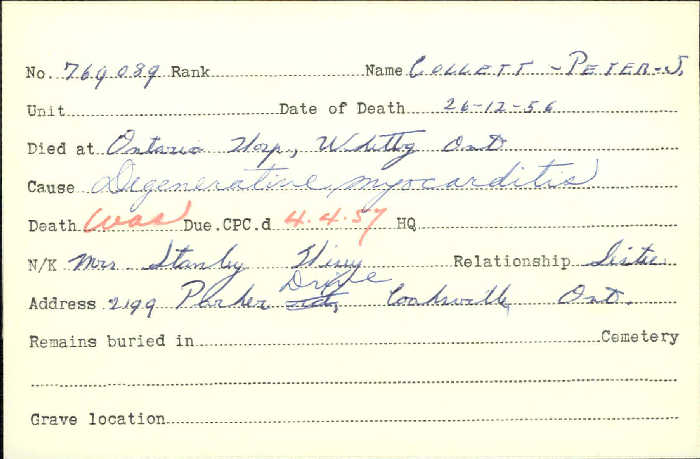 No. 769089 Rank Name COLLETT - PETER-J.
Unit Date of Death 26-12-56
Died at Ontario Hosp., Whitby Ont
Cause Degenerative myocarditis
Death was Due.CPC.d 4.4.57 HQ
N/K Mrs Stanley Relationship Sister
Drive
Address 2199 Parker Cooksville, Ont.
Remains buried in Cemetery
Grave location